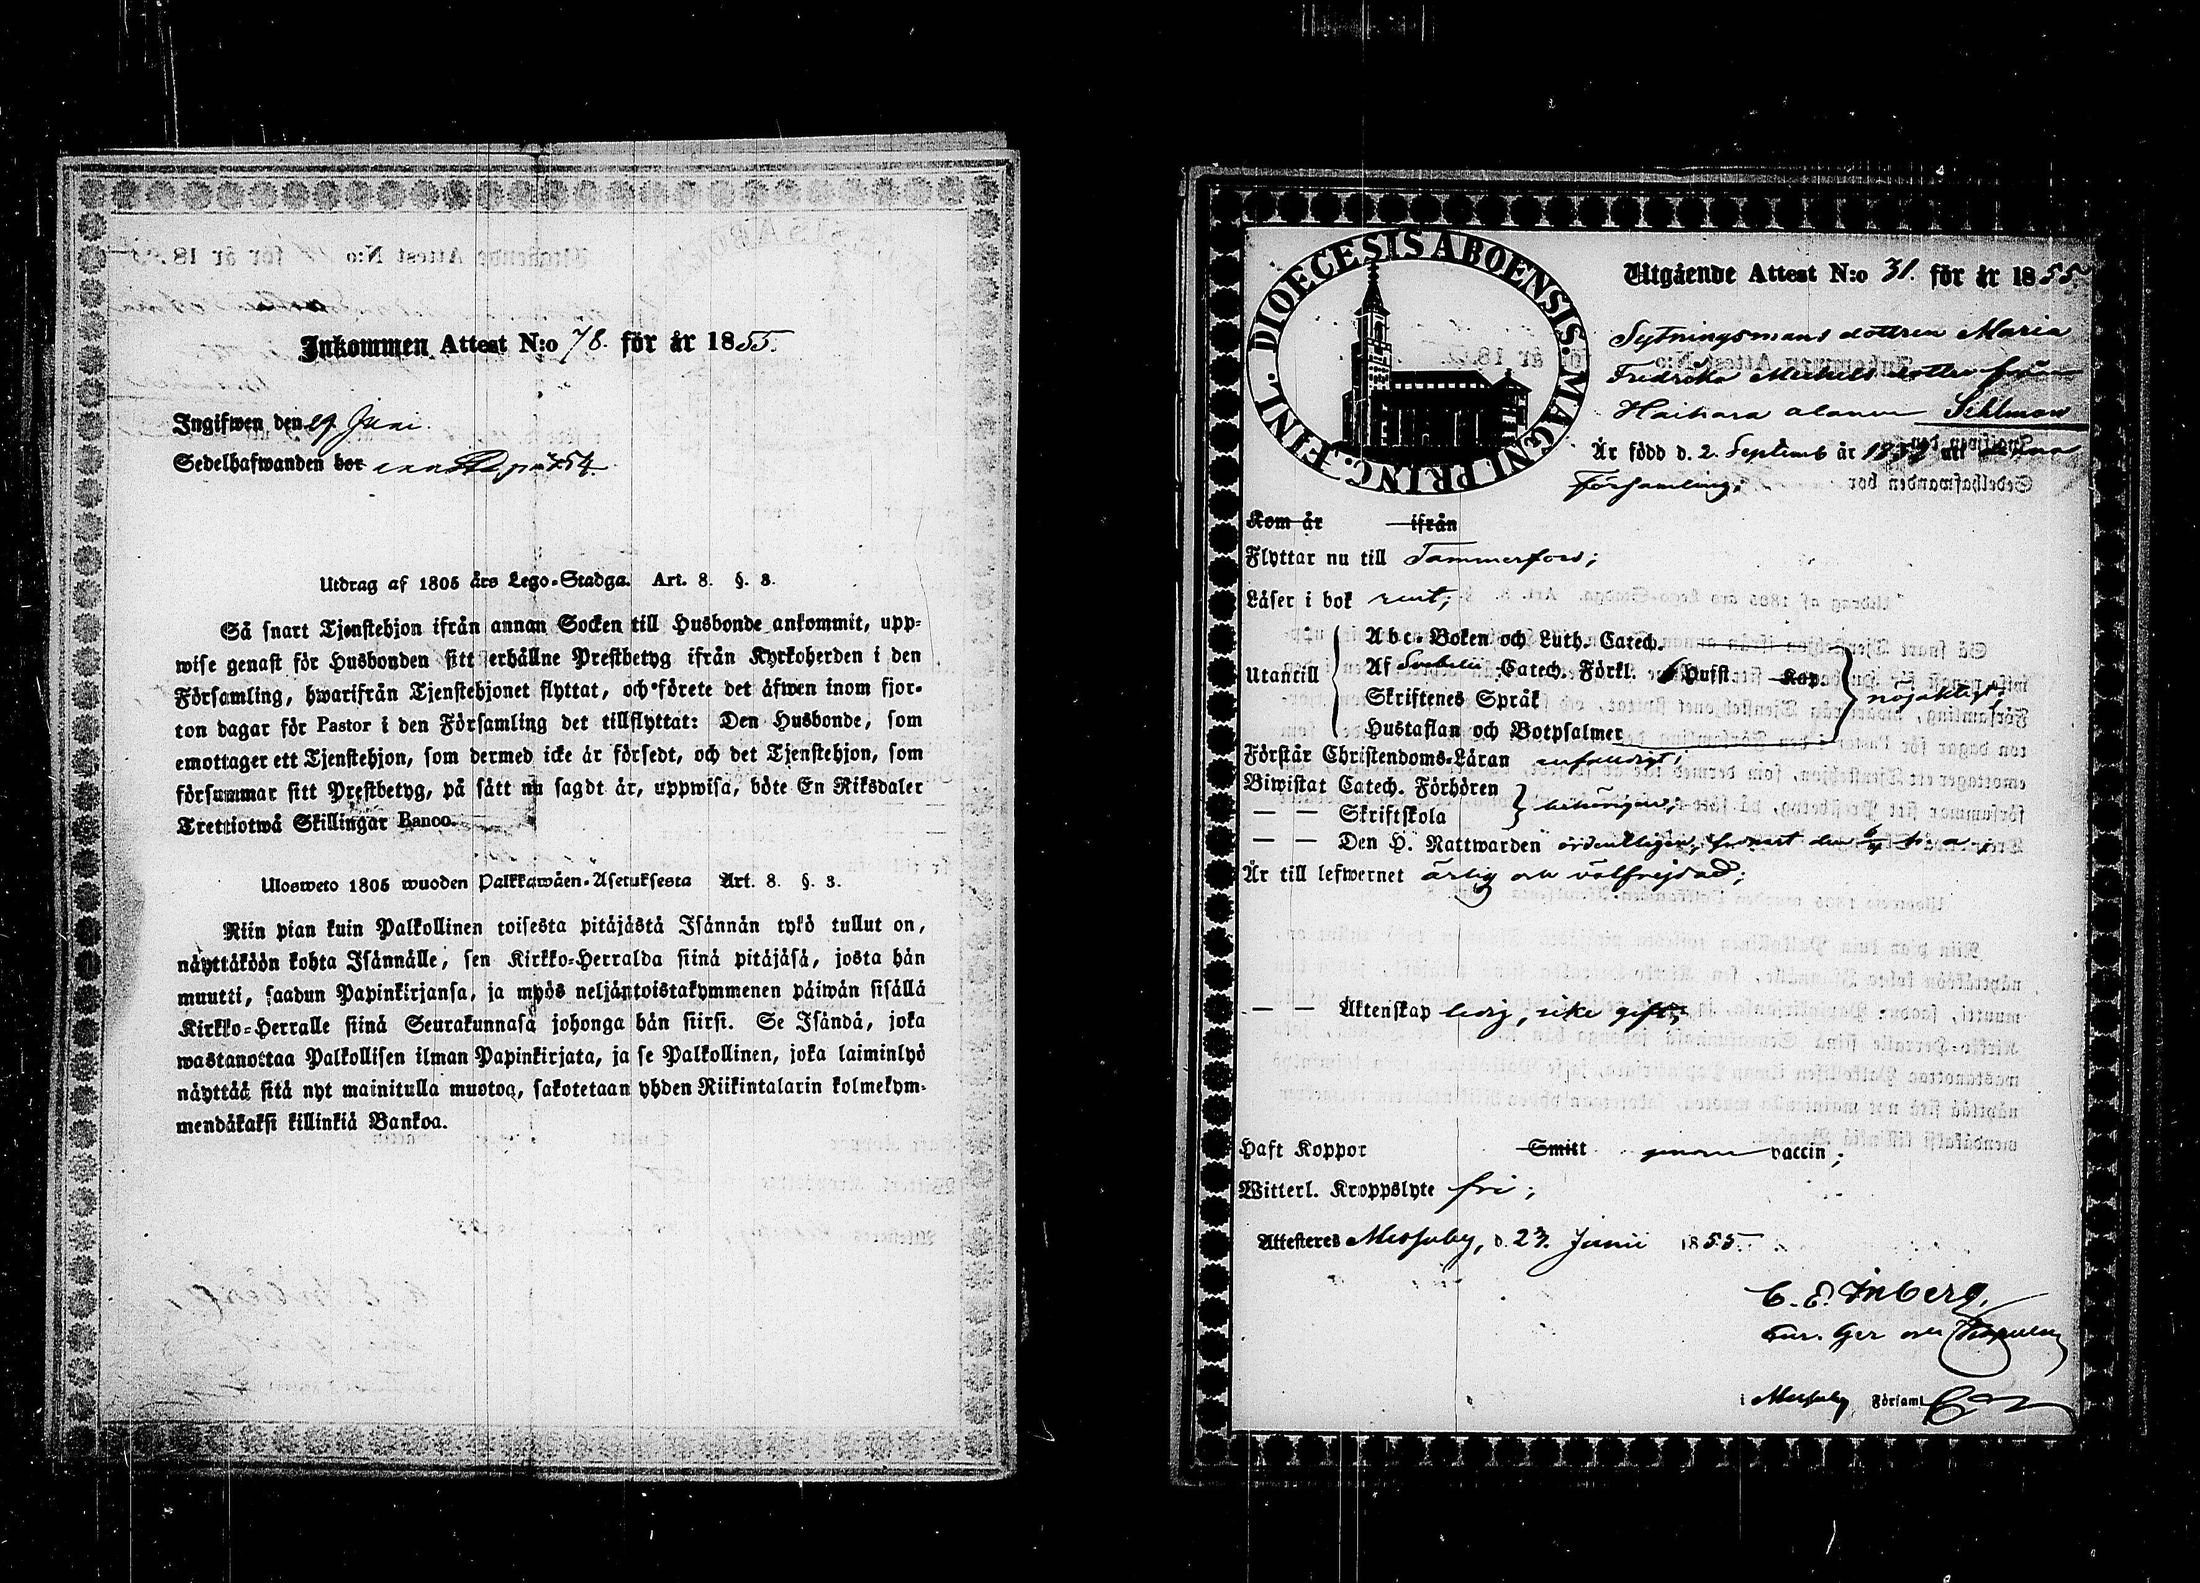 Inkommen Attest N:o 78. för år 1855.
Ingifwen den 29 Juni.
Sedelhafwanden bor
Utdrag af 1805 års Lego-Stadga. Art. 8. §. 3.
Så snart Tjenstehjon ifrån annan Socken till Husbonde ankommit, upp-
wise genast för Husbonden sitt erhållne Prestbetyg ifrån Kyrkoherden i den
Församling, hwarifrån Tjenstehjonet flyttat, och förete det äfwen inom fjor-
ton dagar för Pastor i den Församling det tillflyttat: Den Husbonde, som
emottager ett Tjenstehjon, som dermed icke är försedt, och det Tjenstehjon, som
försummar sitt Prestbetyg, på sätt nu sagdt är, uppwisa, böte En Riksdaler
Trettiotwå Skillingar Banco.
Ulosweto 1805 wuoden Palkkawäen-Asetuksesta Art. 8. §. 3.
Niin pian kuin Palkollinen toisesta pitäjästä Isännän tykö tullut on,
näyttäköön kohta Isännälle, sen Kirkko-Herralda siinä pitäjäsä, josta hän
muutti, saadun Papinkirjansa, ja myös neljäntoistakymmenen päiwän sisällä
Kirkko-Herralle siinä Seurakunnasa johonga hän siirsi. Se Isändä, joka
wastanottaa Palkollisen ilman Papinkirjata, ja se Palkollinen, joka laiminlyö
näyttää sitä nyt mainitulla muotoa, sakotetaan yhden Riikintalarin kolmekym-
mendäkaksi killinkiä Bankoa.
DIOECESIS ABOENSIS. MAGNI PRINC. FINL.
Utgående Attest N:o 31. för år 1855.
Sytningsmans dottren Maria
Fredrika Mickels dotter från
Haihara Sihlman
Är född d. 2. Septemb år uti denna
Församling;
Kom år ifrån
Flyttar nu till Tammerfors;
Läser i bok rent;
Utantill
Abc-Boken och Luth. Catech.
Af Svebelii Catech. Förkl. 6 Hufst Kap
Skriftenes Språk
Hustaflan och Botpsalmer
nöjaktigt;
Förstår Christendoms-Läran
Biwistat Catech. Förhören
— — Skriftskola
behörigen;
— — Den H. Nattwarden ordentligen, senast den
Är till lefwernet ärlig och välfrejdad;
— — Äktenskap ledig, icke gift;
Haft Koppor Smitt genom vaccin;
Witterl. Kroppslyte fri;
Attesteres Messuby, d. 23. Junii 1855.
C. E. Inberg,
i Messuby Församl